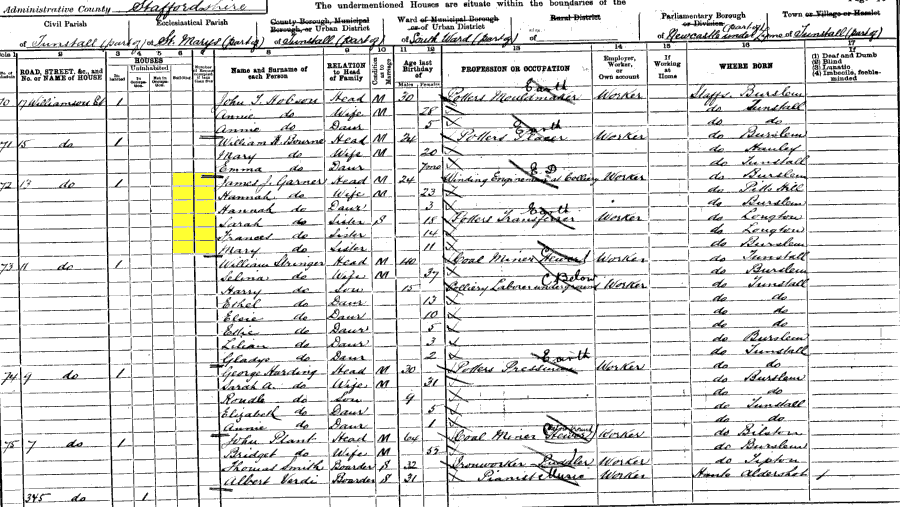 Administrative County Staffordshire The undermentioned Houses are situate within the boundaries of the
Civil Parish Ecclesiastical Parish County Borough, Municipal Borough, or Urban District Ward of Municipal Borough or of Urban District Rural District Parliamentary Borough or Division Town or Village or Hamlet
of Tunstall (part of) of St. Marys (part of) of Tunstall (part of) of South Ward (part of) of of Newcastle under Lyme (part of) of Tunstall (part of)
Cols 1 2 3 4 5 6 7 8 9 10 11 12 13 14 15 16 17
No. of ROAD, STREET, &c., and No. or NAME of HOUSE HOUSES Inhabited Uninhabited Building Name and Surname of each Person RELATION to Head of Family Condition as to Marriage Age last Birthday of Males Females PROFESSION OR OCCUPATION Employer, Worker, or Own account If Working at Home WHERE BORN If (1) Deaf and Dumb (2) Blind (3) Lunatic (4) Imbecile, feeble-minded
70 17 Williamson St 1 John T. Hobson Head M 30 Potters Mouldmaker Earth Worker Staffs Burslem
Annie do Wife M 28 do Tunstall
Annie do Daur 5 do do
71 15 do 1 William H. Bourne Head M 24 Potters Placer Earth Worker do Burslem
Mary do Wife M 20 do Hanley
Emma do Daur 7mo do Tunstall
72 13 do 1 James J. Garner Head M 24 Winding Engineman at Colliery E D Worker do Burslem
Hannah do Wife M 23 do Pitts Hill
Hannah do Daur 3 do Burslem
Sarah do Sister S 18 Potters Transferrer Earth Worker do Longton
Frances do Sister 14 do Longton
Mary do Sister 11 do Burslem
73 11 do 1 William Stringer Head M 40 Coal Miner Hewer Worker do Tunstall
Selina do Wife M 37 do Burslem
Harry do Son 15 Colliery Laborer underground Below Worker do Tunstall
Ethel do Daur 13 do do
Elsie do Daur 10 do do
Ettie do Daur 5 do do
Lilian do Daur 3 do Burslem
Gladys do Daur 2 do Tunstall
74 9 do 1 George Harding Head M 30 Potters Pressman Earth Worker do do
Sarah A. do Wife M 31 do Burslem
do Son 9 do do
Elizabeth do Daur 5 do Tunstall
Annie do Daur 1 do do
75 7 do 1 John Plant Head M 64 Coal Miner Hewer Worker do Bilston
Bridget do Wife M 52 do Burslem
Thomas Smith Boarder S 32 Ironworker Puddler Worker do Tipton
Albert Verdi Boarder S 31 Pianist Music Worker Hants Aldershot
345 do 1